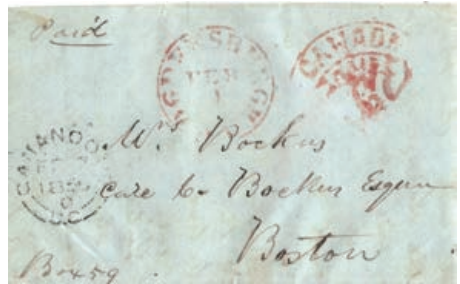 Paid
OGDENSBURGH
FEB
1
CANADA
GANANOQUE
185
U.C
Mrs Bockus
Care C. Bockus Esquire
Boston
Box 59